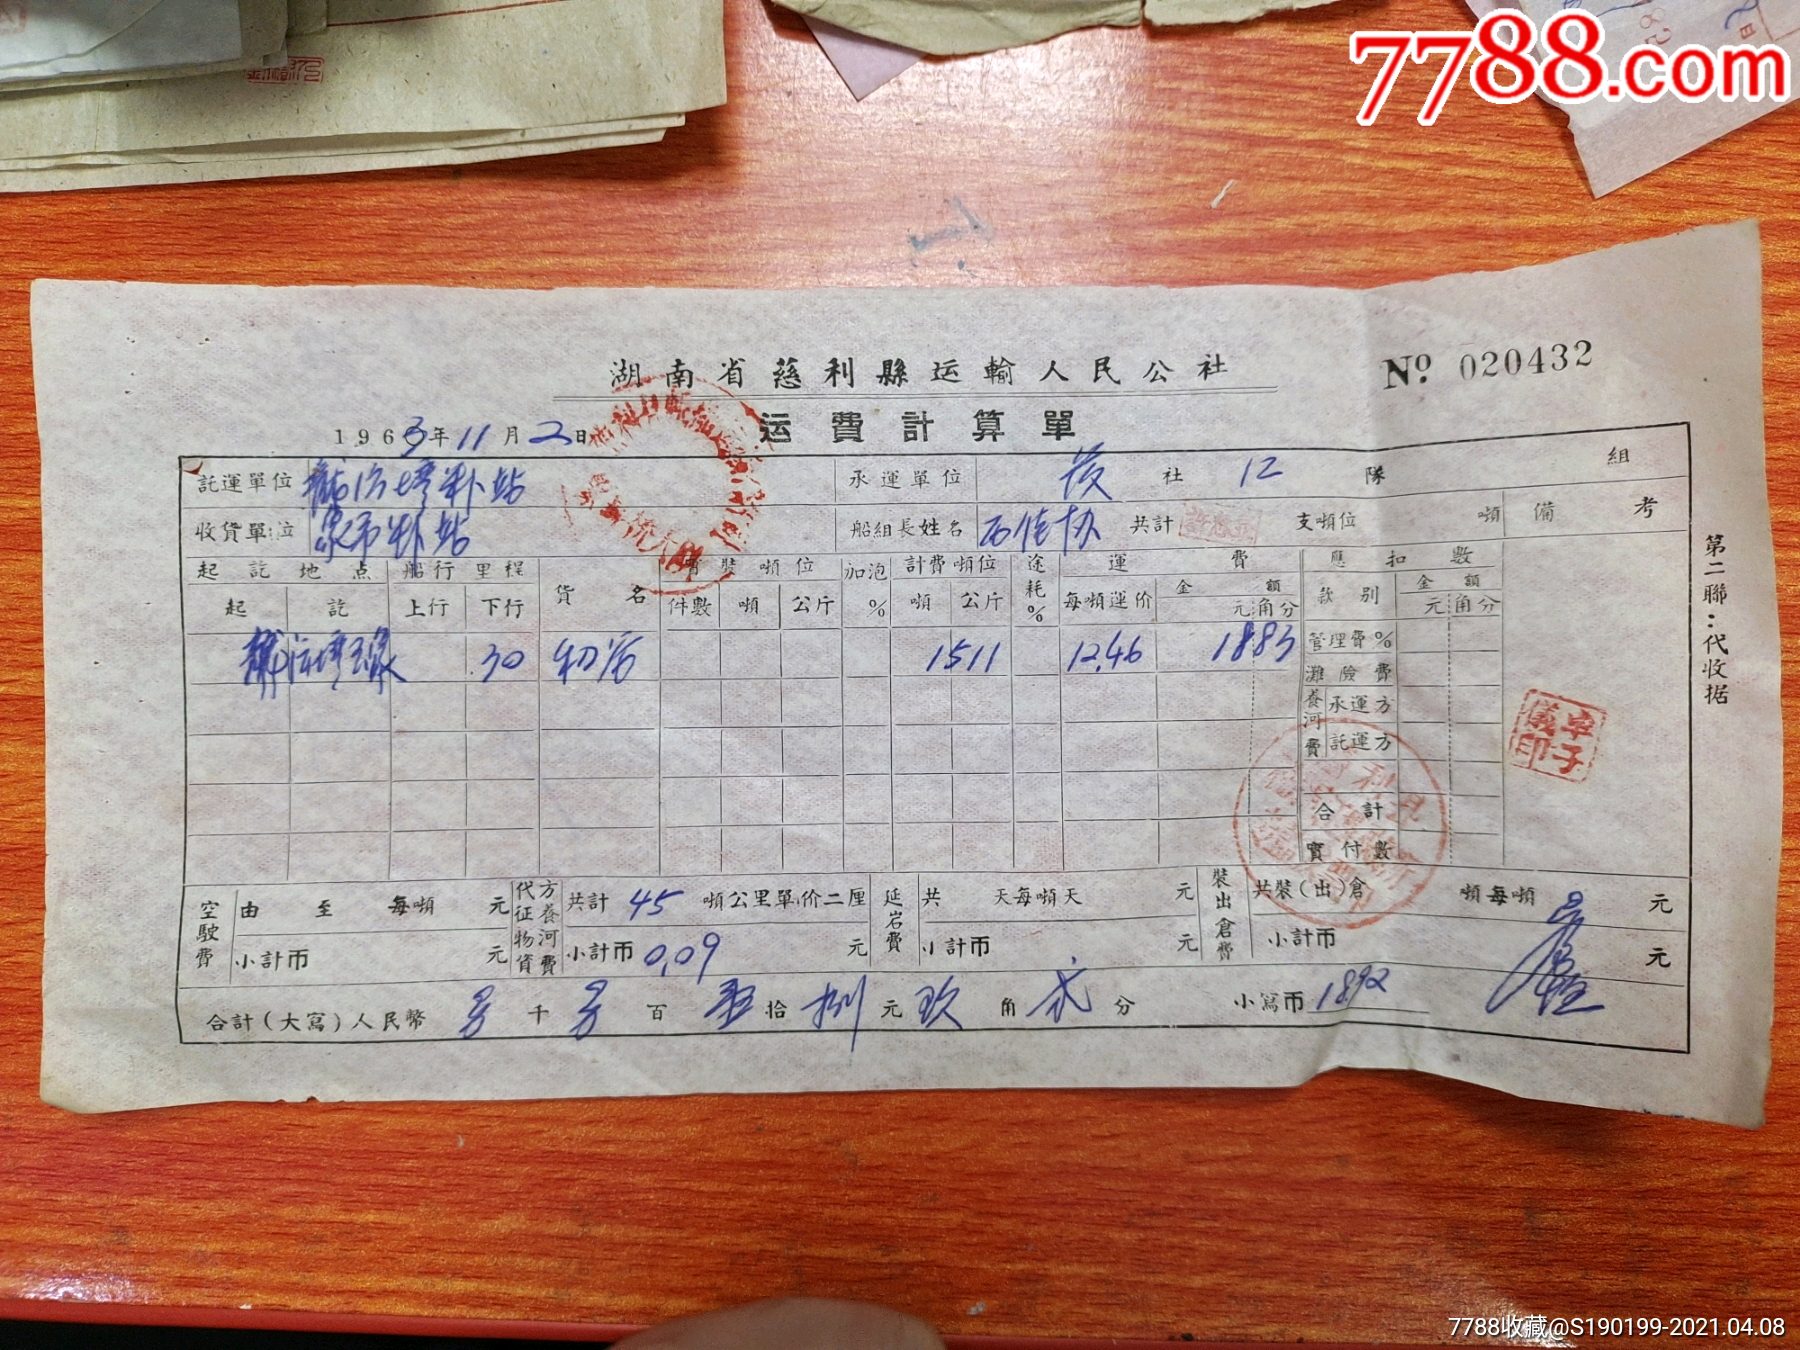 7788.com
湖南省慈利縣运輸人民公社
No. 020432
运費計算單
1963年11月2日
託運單位
承運單位 社 12 隊 組
收貨單位
船組長姓名 共計 支噸位 噸 備考
起訖地点 船行里程 貨名 實裝噸位 加泡% 計費噸位 途耗% 運費 應扣數
起 訖 上行 下行 件數 噸 公斤 噸 公斤 每噸運价 金額 元角分 款别 金額 元角分
30 1511 12.46 1883 管理費%
灘險費
養河費 承運方
託運方
合計
實付數
第二聯：代收据
卓子儀印
空駛費 由 至 每噸 元 代征物資方養河費 共計 45 噸公里單价二厘 延岩費 共 天每噸天 元 裝出倉費 共裝(出)倉 噸每噸 元
小計币 元 小計币 0.09 元 小計币 元 小計币 元
合計(大寫)人民幣 千 百 伍拾 捌元 玖角 貳分 小寫币 1892
7788收藏@S190199-2021.04.08